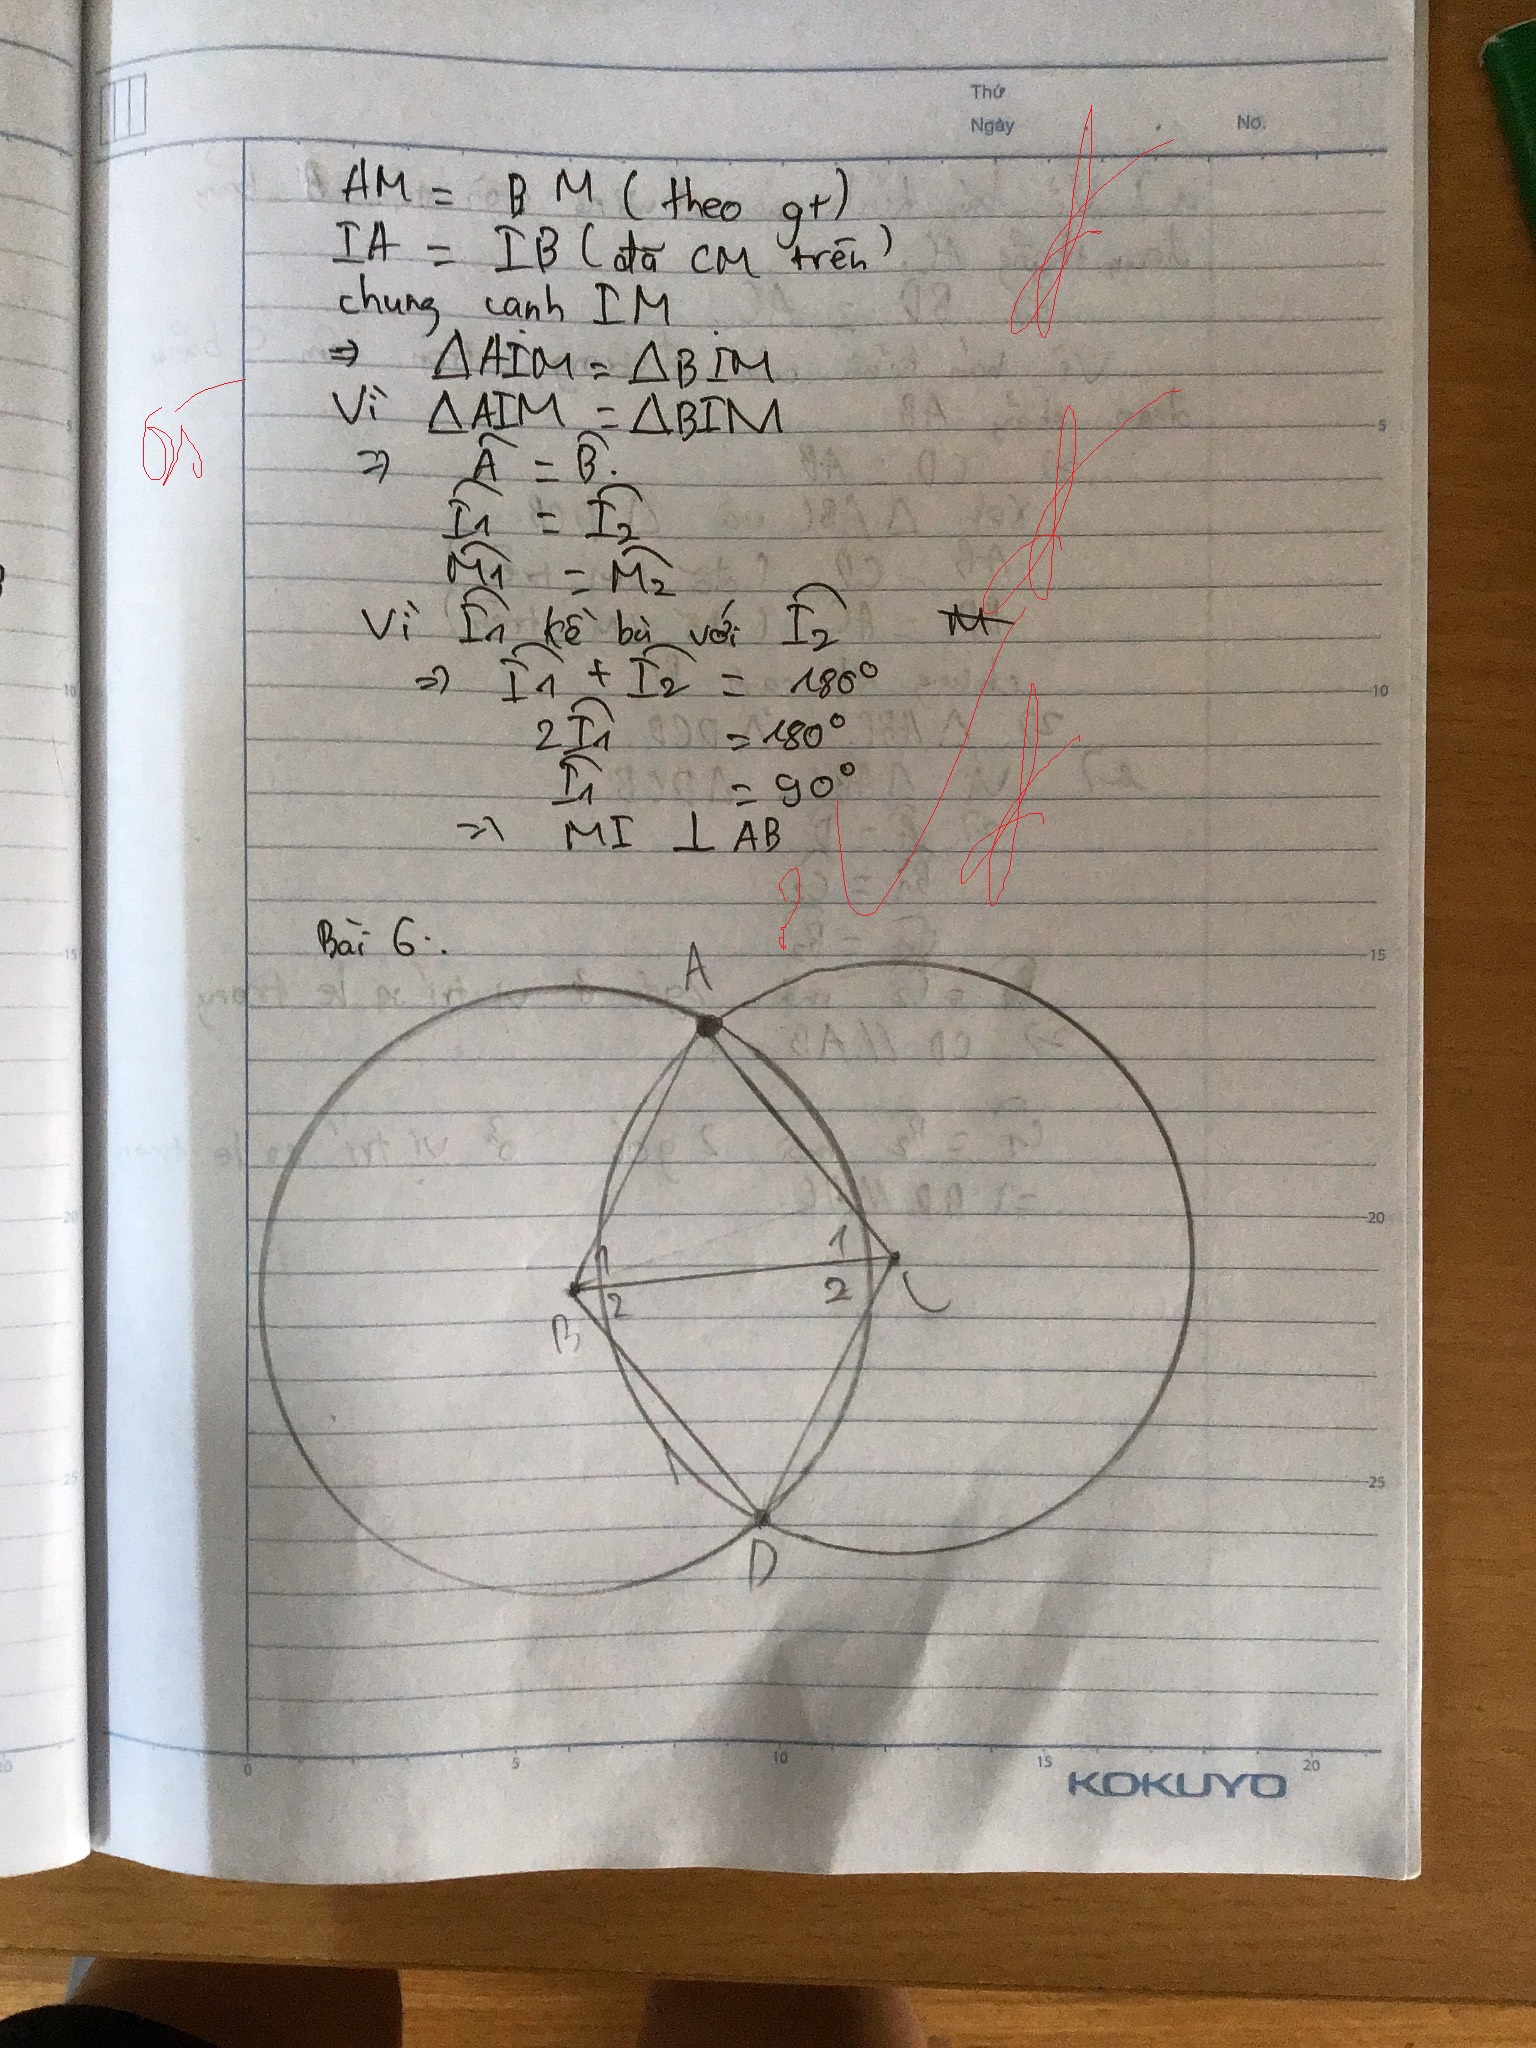 Thứ
Ngày
No.
AM = BM (theo gt)
IA = IB (đã CM trên)
chung cạnh IM
⇒ ΔAIM = ΔBIM
Vì ΔAIM = ΔBIM
⇒ Â = B̂.
Î1 = Î2
M̂1 = M̂2
Vì Î1 kề bù với Î2
⇒ Î1 + Î2 = 180°
2Î1 = 180°
Î1 = 90°
⇒ MI ⊥ AB
?
Bài 6:.
A
1 1
2 2
B C
1
D
5
10
15
20
25
0 5 10 15 20
KOKUYO